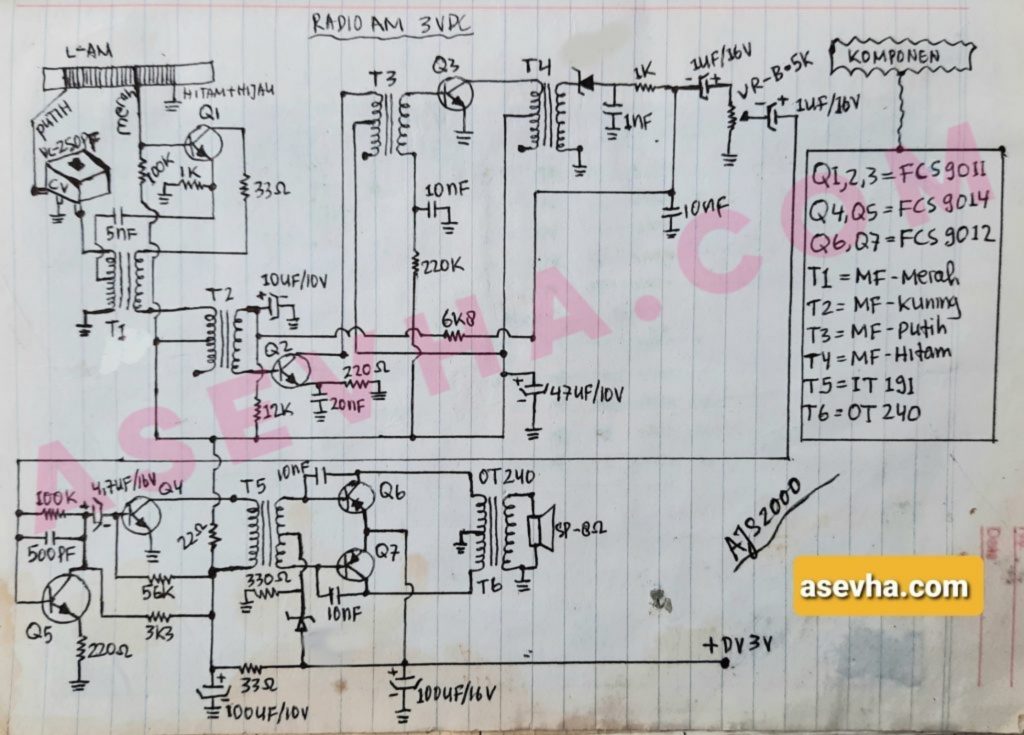 RADIO AM 3VDC
L-AM
PUTIH
Merah
HITAM+HIJAU
Q1
VC-250PF
CV
100K
1K
33Ω
5nF
T1
T2
10UF/10V
Q2
220Ω
20nF
12K
T3
Q3
10nF
220K
6K8
T4
1K
1nF
1UF/16V
VR-B·5K
1UF/16V
10nF
47UF/10V
KOMPONEN
Q1,2,3 = FCS 9011
Q4,Q5 = FCS 9014
Q6,Q7 = FCS 9012
T1 = MF-Merah
T2 = MF-Kuning
T3 = MF-Putih
T4 = MF-Hitam
T5 = IT 191
T6 = OT 240
ASEVHA.COM
100K
4,7UF/16V
Q4
500PF
Q5
220Ω
56K
3K3
22Ω
T5
10nF
Q6
Q7
10nF
330Ω
OT240
T6
SP-8Ω
33Ω
100UF/10V
100UF/16V
+DV3V
AJS2000
asevha.com
Date